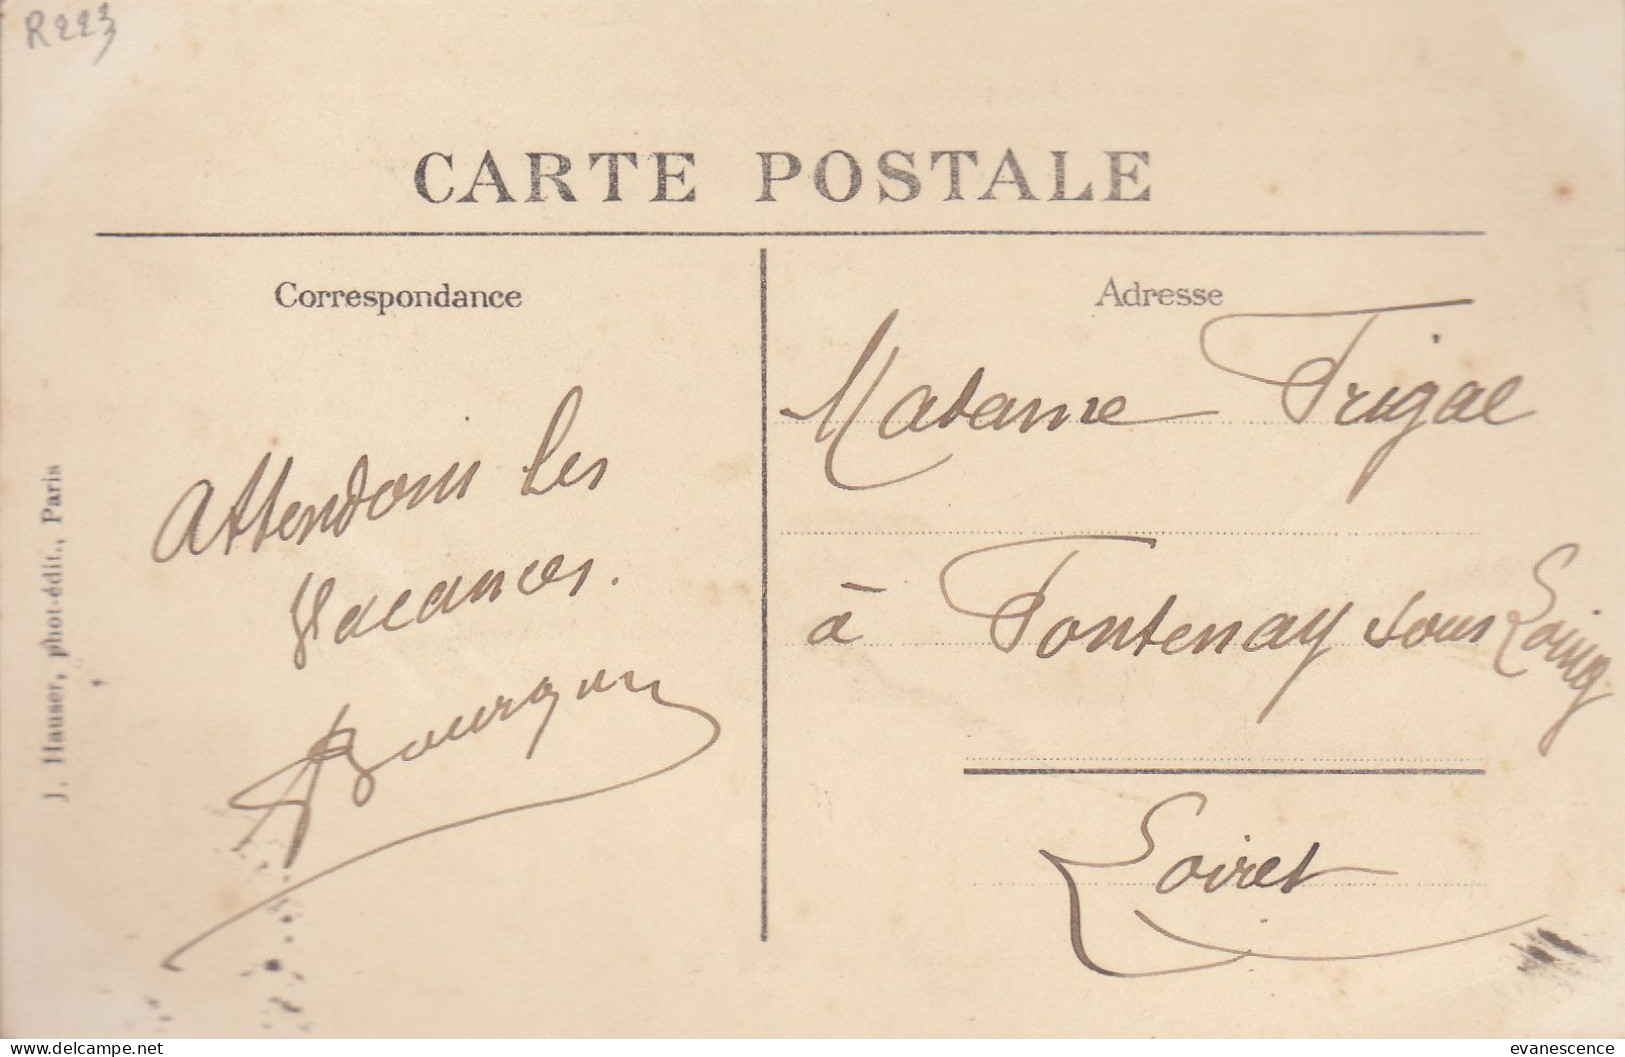 R223
CARTE POSTALE
Correspondance
Adresse
Attendons les
Vacances.
J. Hauser, phot-édit., Paris
Madame Trigal
à Fontenay sous Loing
Loiret
www.delcampe.net
evanescence